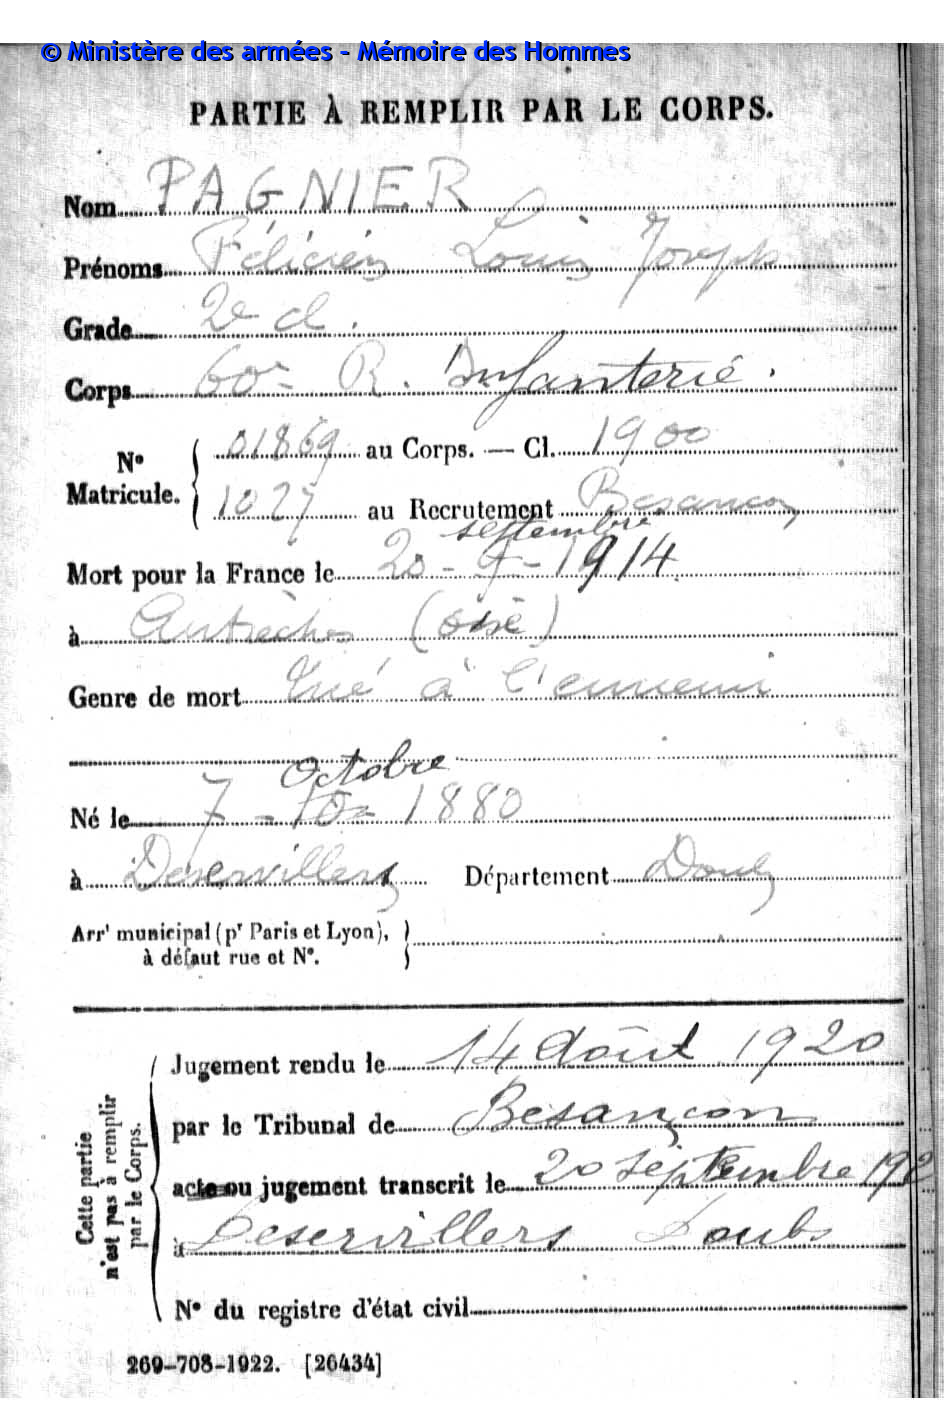 © Ministère des armées - Mémoire des Hommes
PARTIE À REMPLIR PAR LE CORPS.
Nom PAGNIER
Prénoms Félicien Louis Joseph
Grade 2e cl.
Corps 60e R. Infanterie.
N° Matricule. 01869 au Corps. — Cl. 1900
1027 au Recrutement Besançon
septembre
Mort pour la France le 20 - 9 - 1914
à Autrèches (Oise)
Genre de mort Tué à l'ennemi
octobre
Né le 7 - 10 - 1880
à Deservillers Département Doubs
Arrt municipal (pr Paris et Lyon),
à défaut rue et N°.
Cette partie
n'est pas à remplir
par le Corps.
Jugement rendu le 14 Août 1920
par le Tribunal de Besançon
acte ou jugement transcrit le 20 septembre 192
à Deservillers Doubs
N° du registre d'état civil
269-708-1922. [26434]